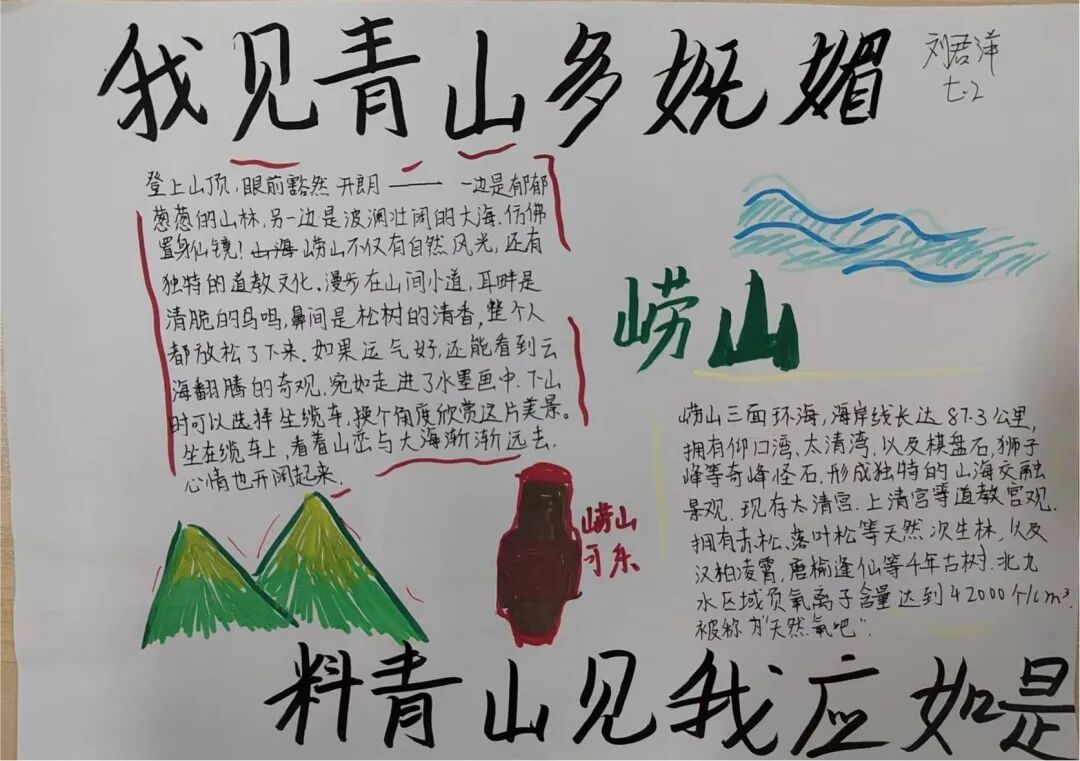 我见青山多妩媚
刘君洋
七.2
登上山顶，眼前豁然开朗——一边是郁郁
葱葱的山林，另一边是波澜壮阔的大海，仿佛
置身仙镜！山海崂山不仅有自然风光，还有
独特的道教文化。漫步在山间小道，耳畔是
清脆的鸟鸣，鼻间是松树的清香，整个人
都放松了下来。如果运气好，还能看到云
海翻腾的奇观，宛如走进了水墨画中。下山
时可以选择坐缆车，换个角度欣赏这片美景。
坐在缆车上，看着山峦与大海渐渐远去，
心情也开阔起来。
崂山
崂山三面环海，海岸线长达87.3公里，
拥有仰口湾、太清湾，以及棋盘石，狮子
峰等奇峰怪石，形成独特的山海交融
景观。现存太清宫、上清宫等道教宫观。
拥有赤松、落叶松等天然次生林，以及
汉柏凌霄，唐榆逢仙等千年古树。北九
水区域负氧离子含量达到42000个/cm³，
被称为"天然氧吧"。
崂山
可乐
料青山见我应如是